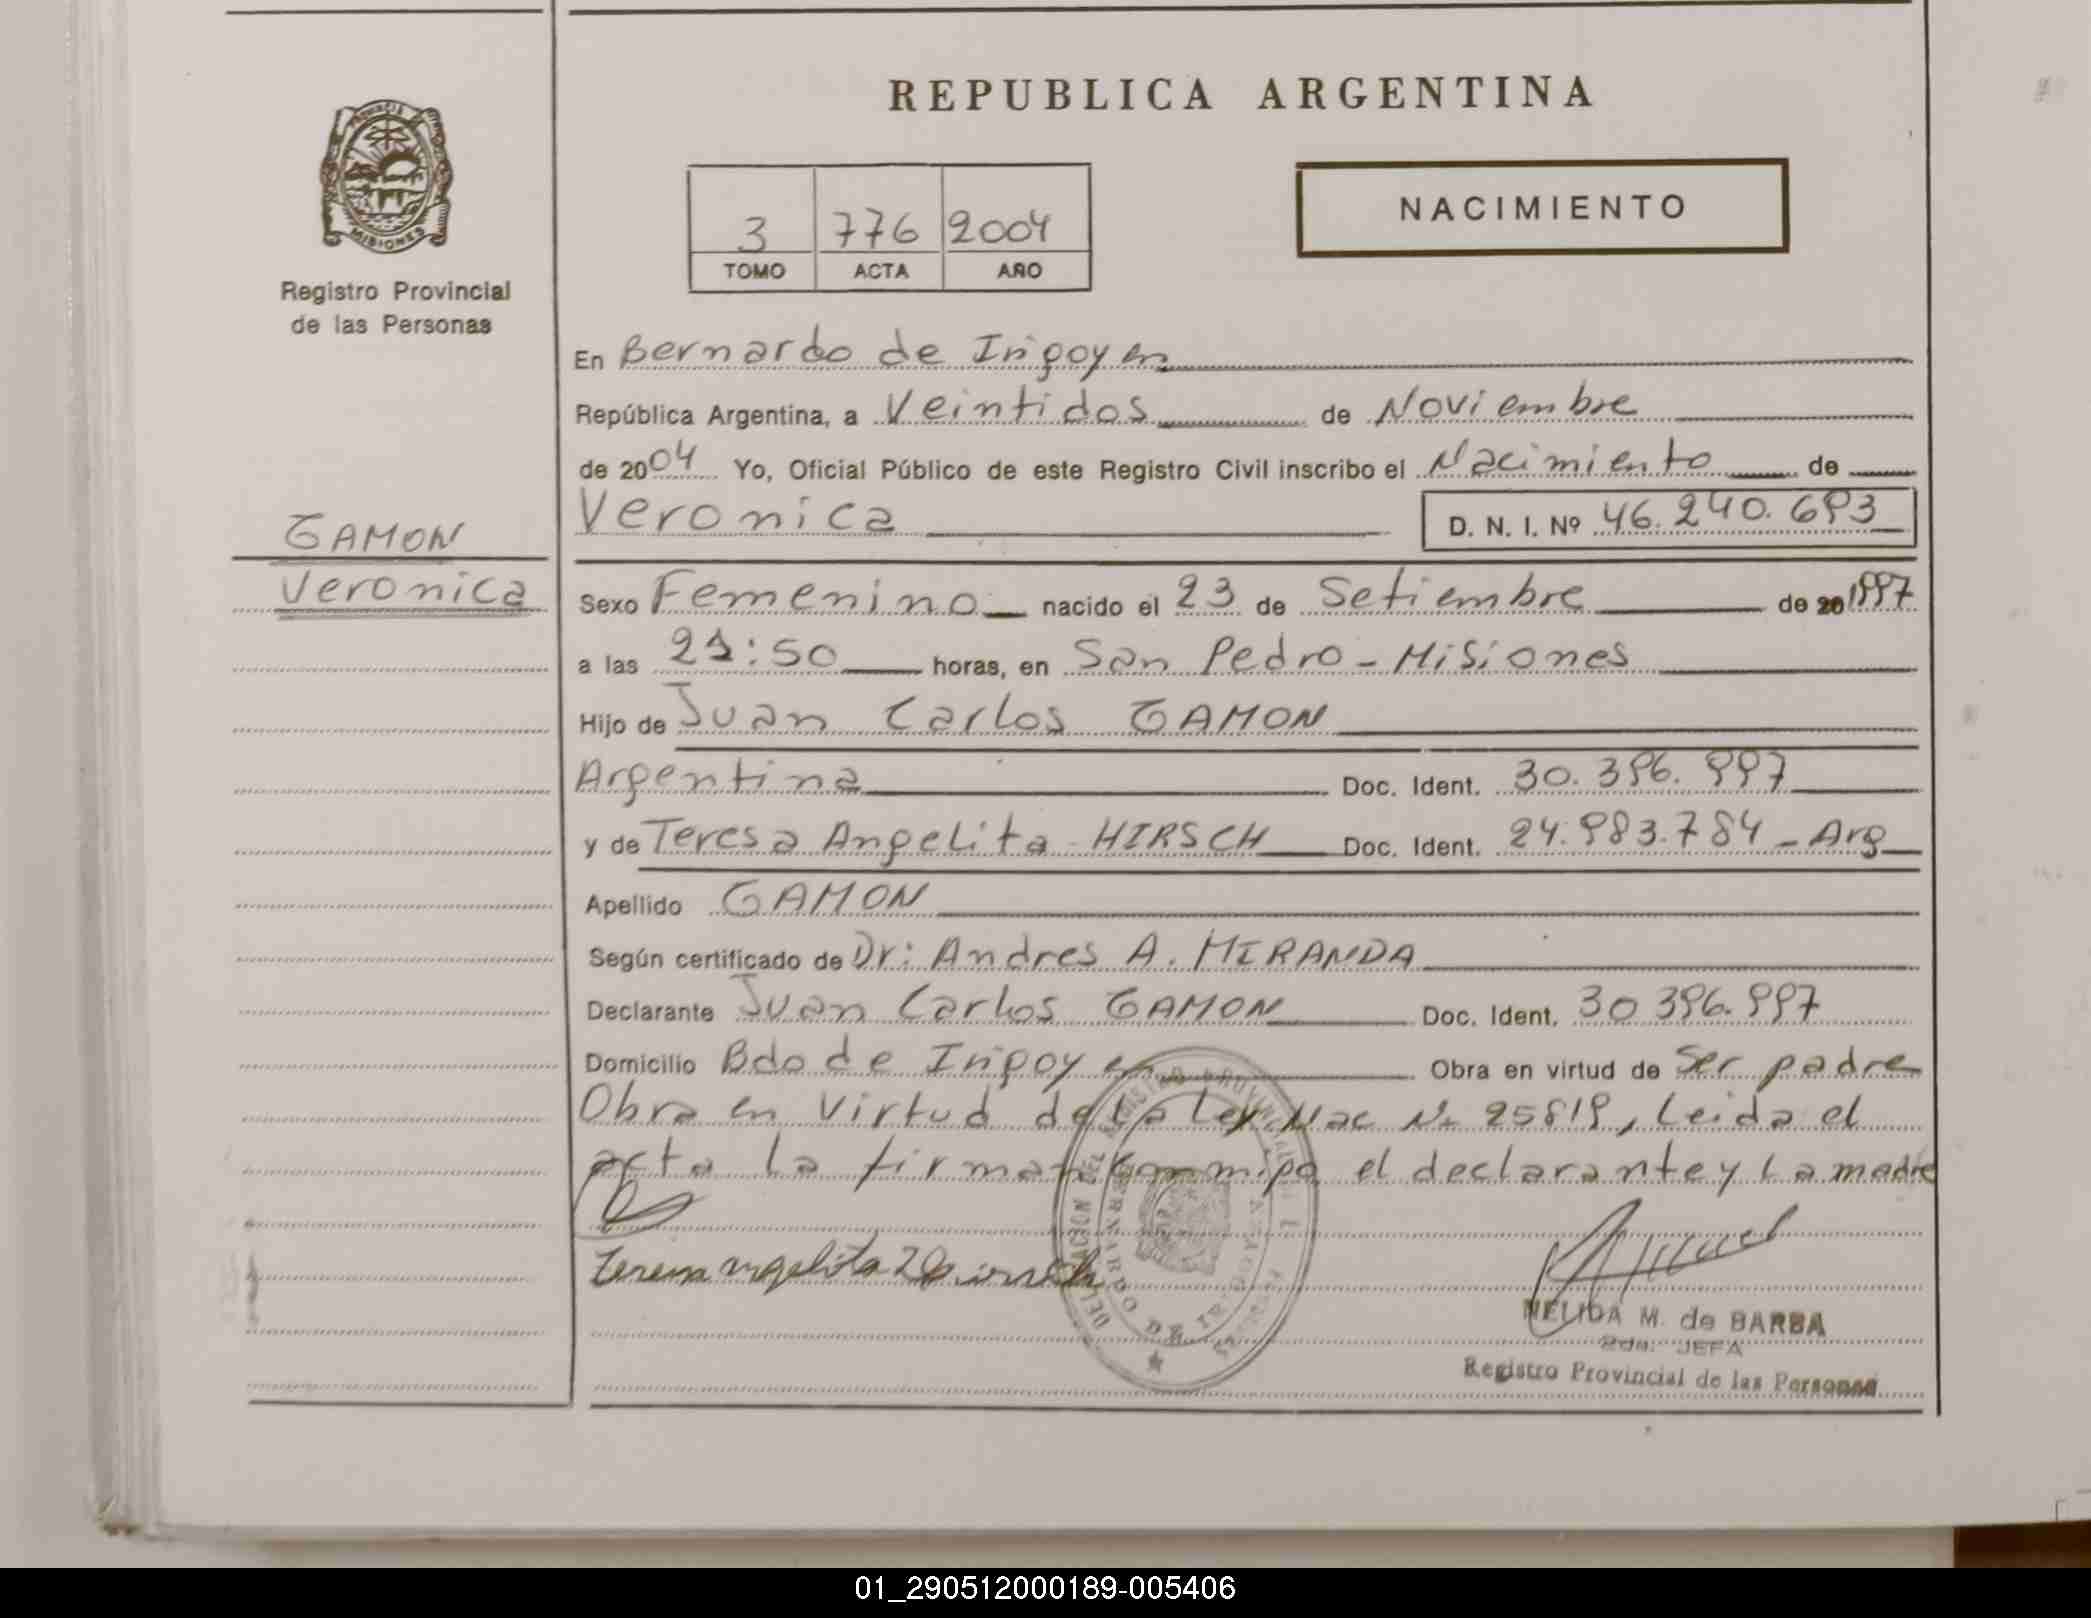 REPUBLICA ARGENTINA
PROVINCIA
MISIONES
Registro Provincial
de las Personas
3 776 2004
TOMO ACTA AÑO
NACIMIENTO
En Bernardo de Irigoyen
República Argentina, a Veintidos de Noviembre
de 2004 Yo, Oficial Público de este Registro Civil inscribo el Nacimiento de
GAMON
Veronica
Veronica D. N. I. Nº 46.240.693
Sexo Femenino nacido el 23 de Setiembre de 20 1997
a las 21:50 horas, en San Pedro - Misiones
Hijo de Juan Carlos GAMON
Argentina Doc. Ident. 30.396.997
y de Teresa Angelita HIRSCH Doc. Ident. 24.983.784 - Arg
Apellido GAMON
Según certificado de Dr: Andres A. MIRANDA
Declarante Juan Carlos GAMON Doc. Ident. 30 396.997
Domicilio Bdo de Irigoyen Obra en virtud de Ser padre
Obra en Virtud de La Ley Nac Nº 25819, Leida el
acta La firman conmigo el declarante y La madre
NELIDA M. de BARBA
JEFA
Registro Provincial de las Personas
01_290512000189-005406